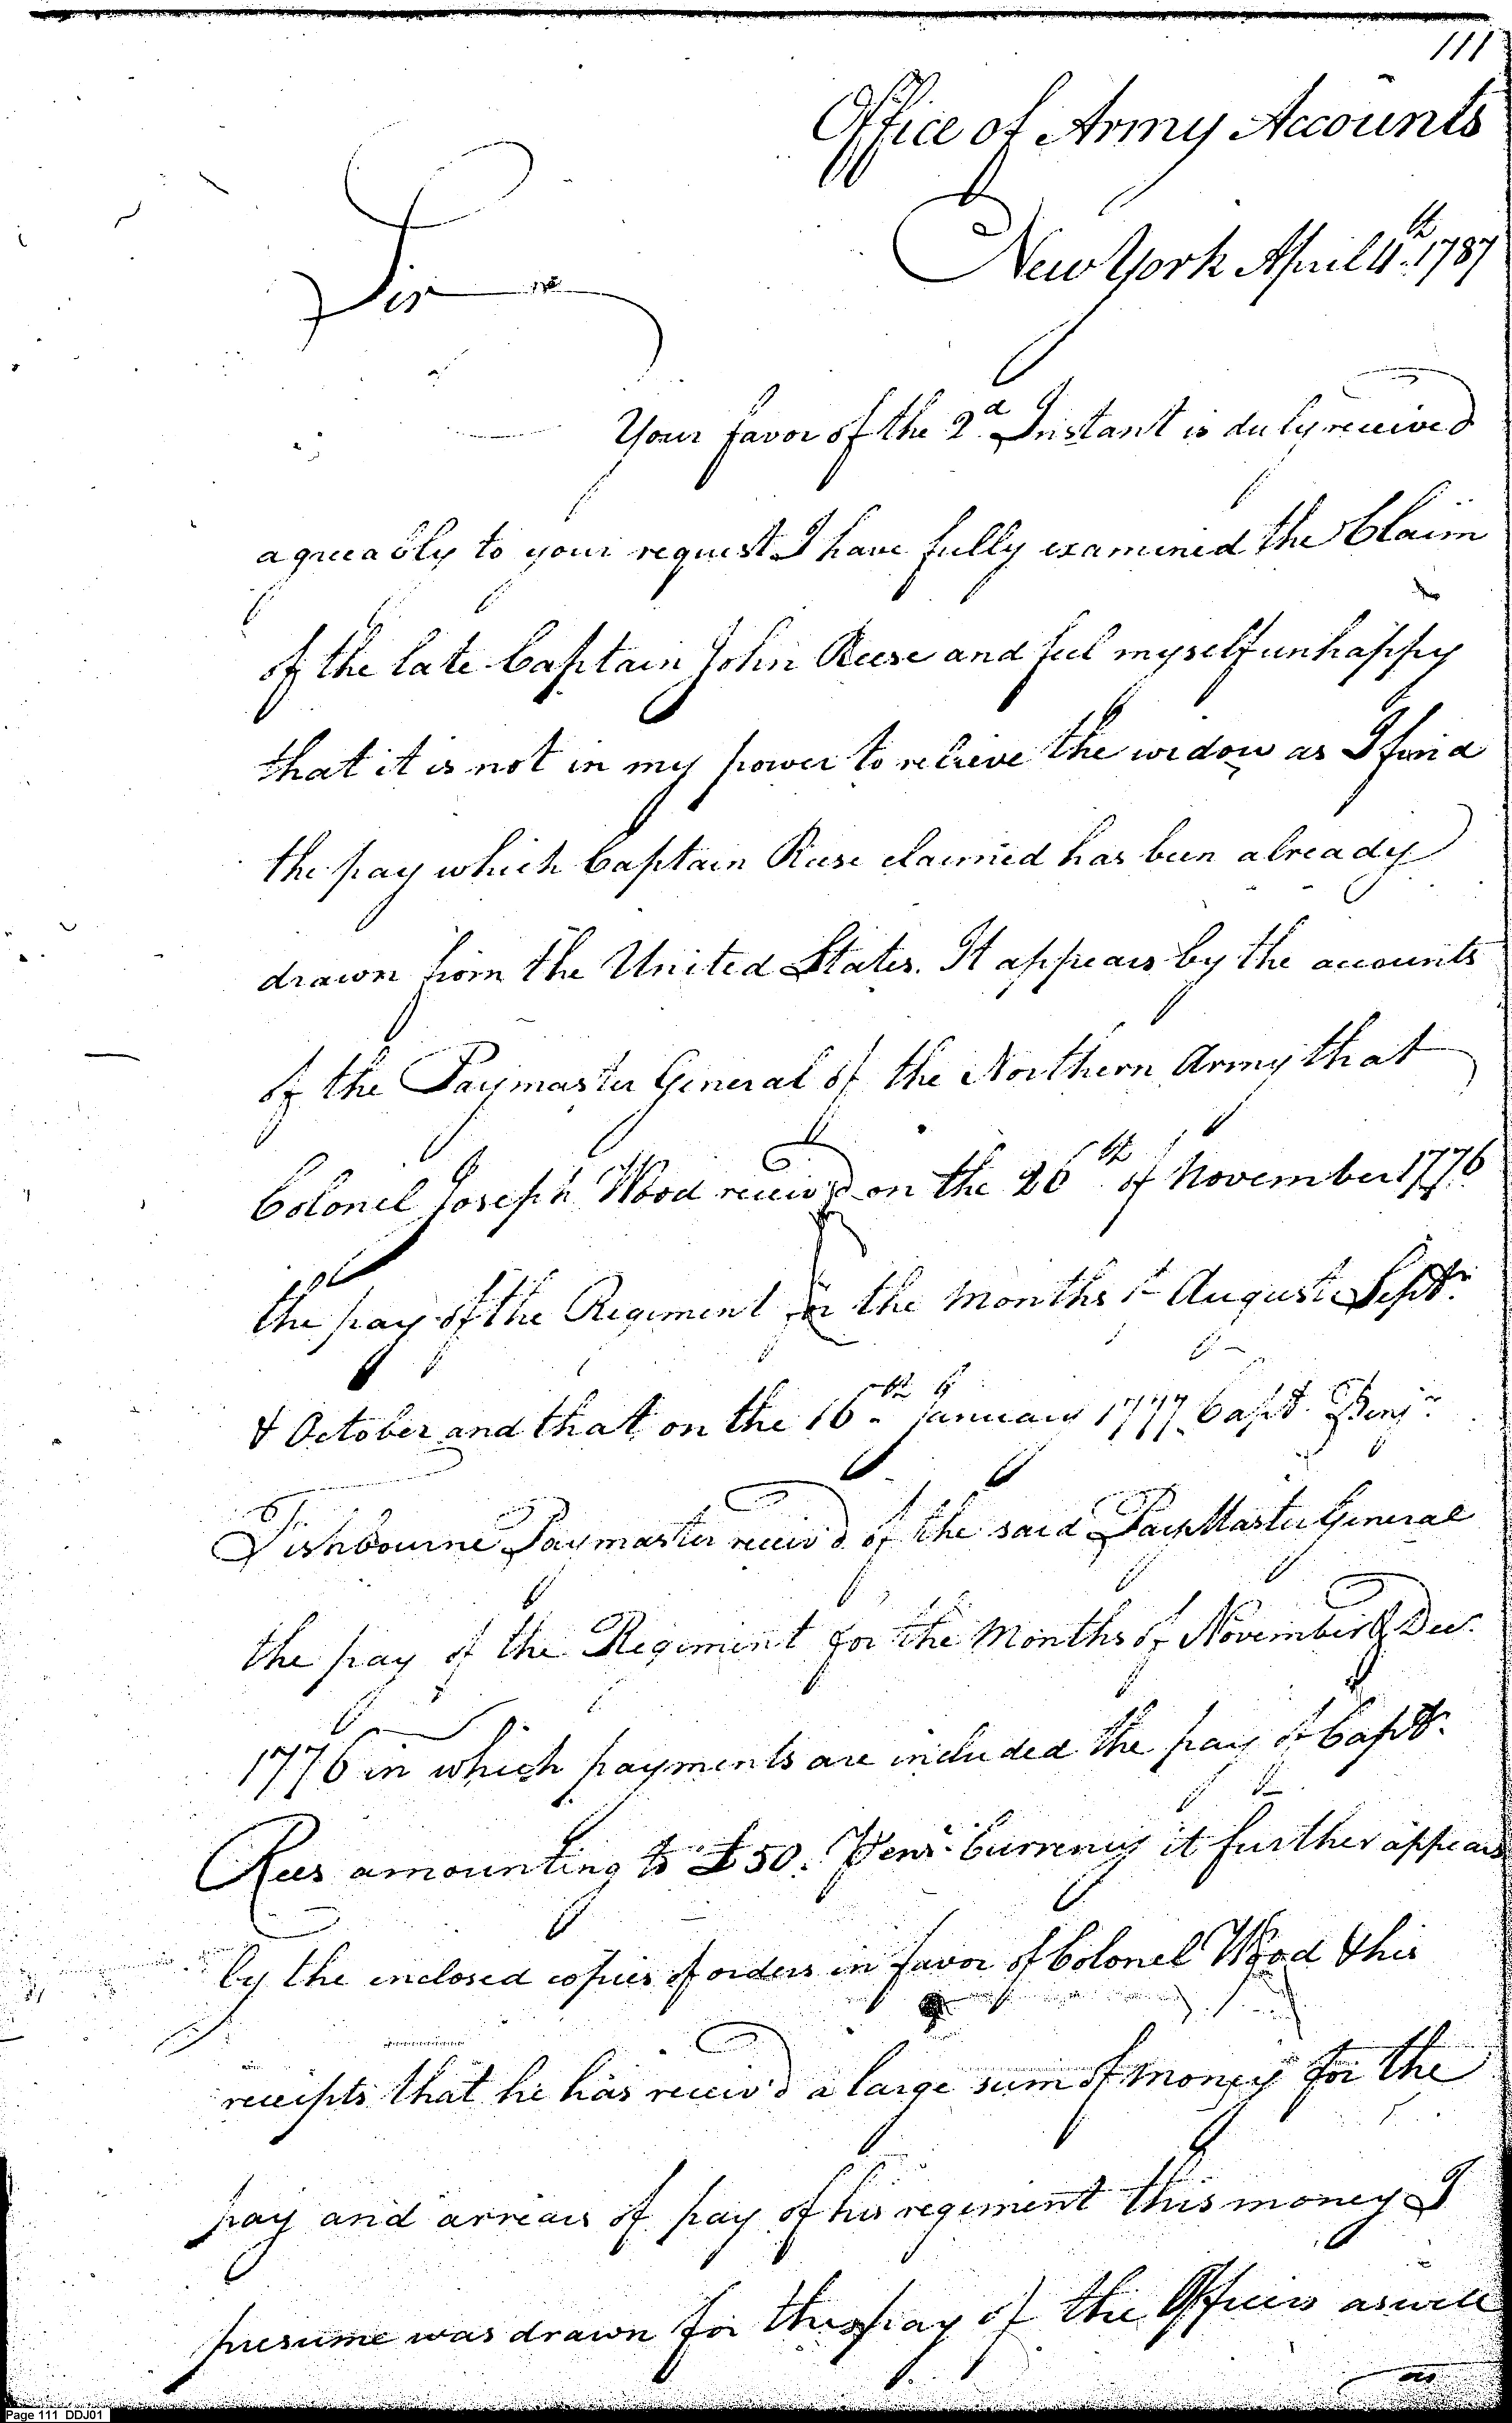 111
Office of Army Accounts
New York April 4th 1787
Sir
Your favor of the 2d Instant is duly received
agreeably to your request I have fully examined the Claim
of the late Captain John Reese and feel myself unhappy
that it is not in my power to relieve the widow as I find
the pay which Captain Reese claimed has been already
drawn from the United States. It appears by the accounts
of the Paymaster General of the Northern Army that
Colonel Joseph Wood receiv'd on the 26th of November 1776
the pay of the Regiment for the Months of August Sept.r
& October and that on the 16th January 1777 Capt. Benjn
Fishbourne Paymaster receiv'd of the said PayMaster General
the pay of the Regiment for the Months of November & Decr.
1776 in which payments are included the pay of Capt.
Rees amounting to £50. Penna. Currency it further appears
by the enclosed copies of orders in favor of Colonel Wood & his
receipts that he has receiv'd a large sum of money for the
pay and arrears of pay of his regiment this money I
presume was drawn for the pay of the Officers as well
as
Page 111 DDJ01